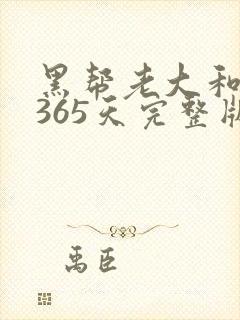 黑帮老大和
365天完整版
禹臣